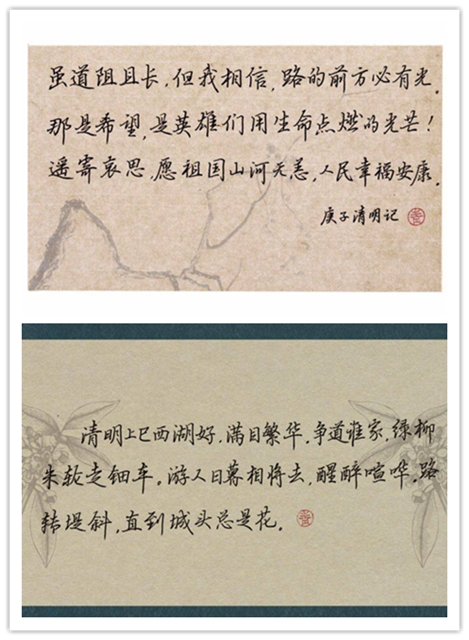 虽道阻且长，但我相信，路的前方必有光。
那是希望，是英雄们用生命点燃的光芒！
遥寄哀思，愿祖国山河无恙，人民幸福安康。
庚子清明记
清明上巳西湖好，满目繁华，争道谁家，绿柳
朱轮走钿车。游人日暮相将去，醒醉喧哗，路
转堤斜，直到城头总是花。